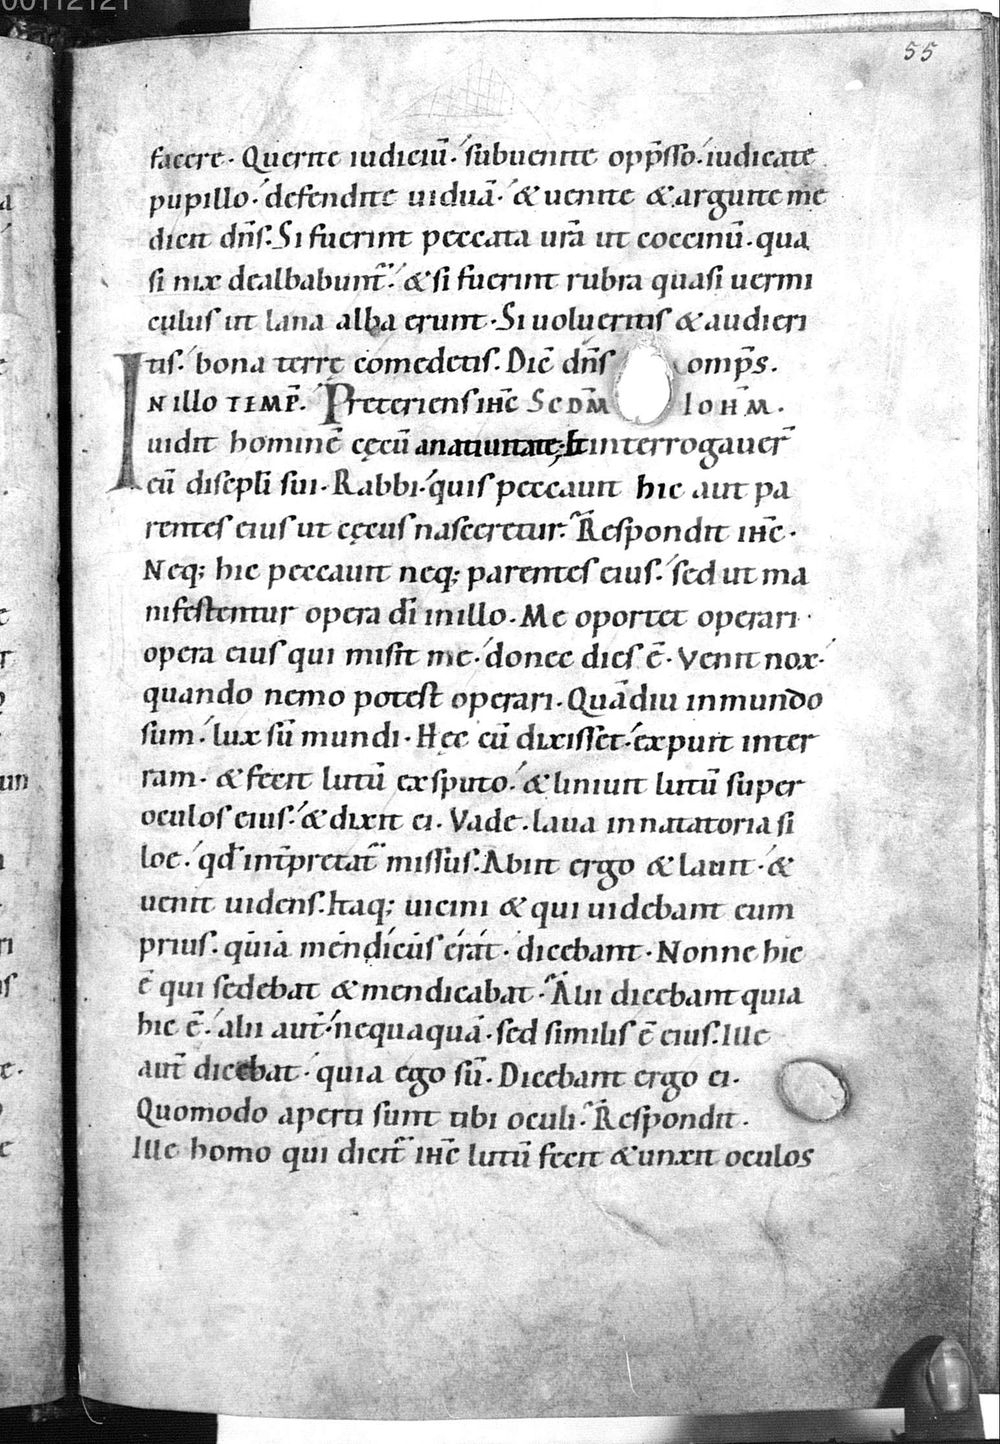 00112121
55
facere. Querite iudiciū. subuenite opp̄sso. iudicate
pupillo. defendite uiduā. & uenite & arguite me
dicit dn̄s. Si fuerint peccata ur̄a ut coccinū. qua
si nix dealbabunt̄. & si fuerint rubra quasi uermi
culus ut lana alba erunt. Si uolueritis & audieri
tis. bona terrę comedetis. Dic̄ dn̄s omp̄s.
IN illo TEMP̄. Preteriens ih̄c Scd̄m Ioh̄m.
uidit hominē cęcū a natiuitate; Et interrogauer̄
eū discipli sui. Rabbi. quis peccauit hic aut pa
rentes eius ut cęcus nasceretur. Respondit ih̄c.
Neq; hic peccauit neq; parentes eius. sed ut ma
nifestentur opera dī in illo. Me oportet operari
opera eius qui misit me. donec dies ē. Venit nox.
quando nemo potest operari. Quādiu in mundo
sum. lux sū mundi. Hęc cū dixisset. expuit in ter
ram. & fecit lutū ex sputo. & liniuit lutū super
oculos eius. & dixit ei. Vade. laua in natatoria si
loe. qd̄ int̄pretat̄ missus. Abiit ergo & lauit. &
uenit uidens. Itaq; uicini & qui uidebant eum
prius. quia mendicus erat. dicebant. Nonne hic
ē qui sedebat & mendicabat. Alii dicebant quia
hic ē. alii aut̄. nequaquā. sed similis ē eius. Ille
aut̄ dicebat. quia ego sū. Dicebant ergo ei.
Quomodo aperti sunt tibi oculi. Respondit.
Ille homo qui dicit̄ ih̄c lutū fecit & unxit oculos